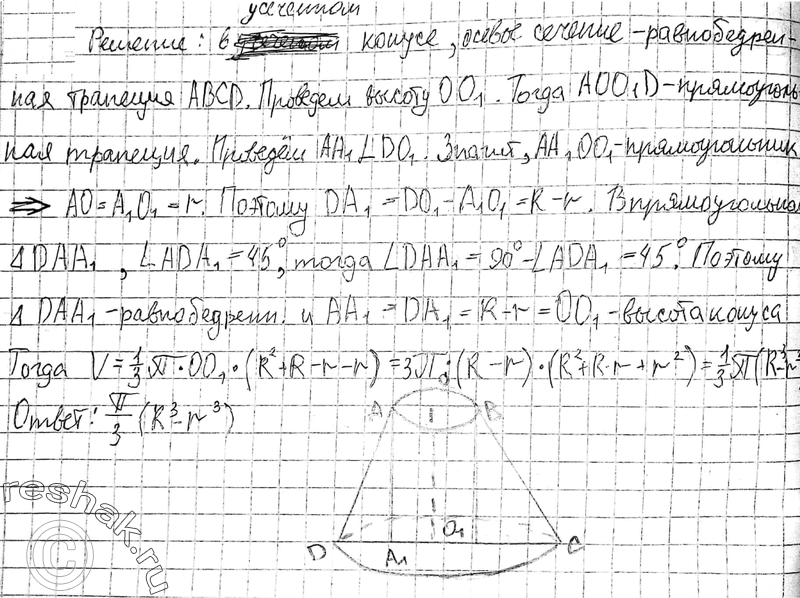 усеченном
Решение: в конусе, осевое сечение - равнобедрен-
ная трапеция ABCD. Проведем высоту OO₁. Тогда AOO₁D - прямоуголь
ная трапеция. Приведём AA₁ ⊥ DO₁. Значит, AA₁OO₁ - прямоугольник
⇒ AO = A₁O₁ = r. Поэтому DA₁ = DO₁ - A₁O₁ = R - r. В прямоугольно
Δ DAA₁, ∠ADA₁ = 45°, тогда ∠DAA₁ = 90° - ∠ADA₁ = 45°. Поэтому
Δ DAA₁ - равнобедренн. и AA₁ = DA₁ = R - r = OO₁ - высота конуса
Тогда V = 1/3 π · OO₁ · (R² + R - r - r) = 3π · (R - r) · (R² + R · r + r²) = 1/3 π (R³ - r³
Ответ: π/3 (R³ - r³)
A O B
O₁
D A₁ C
reshak.ru
©